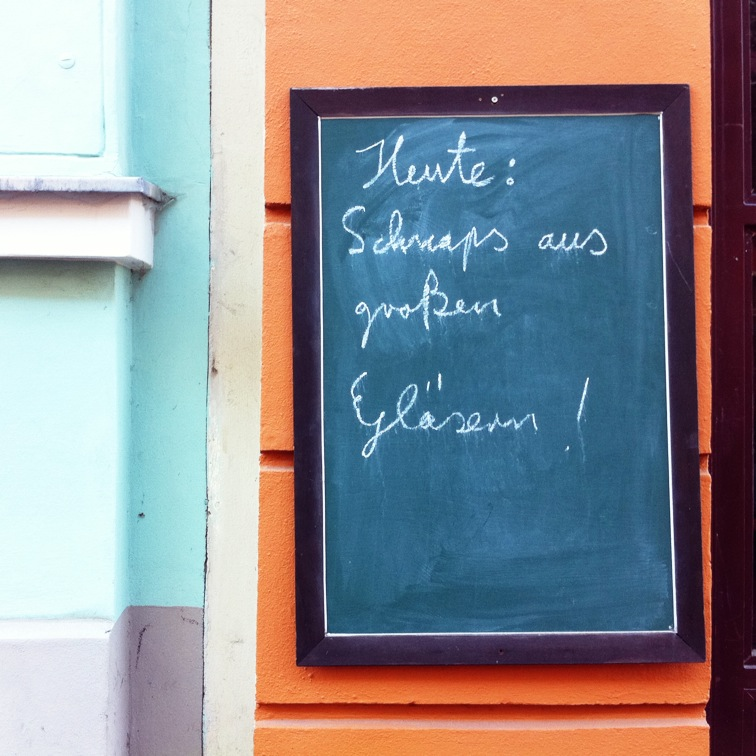 Heute:
Schnaps aus
großen
Gläsern!